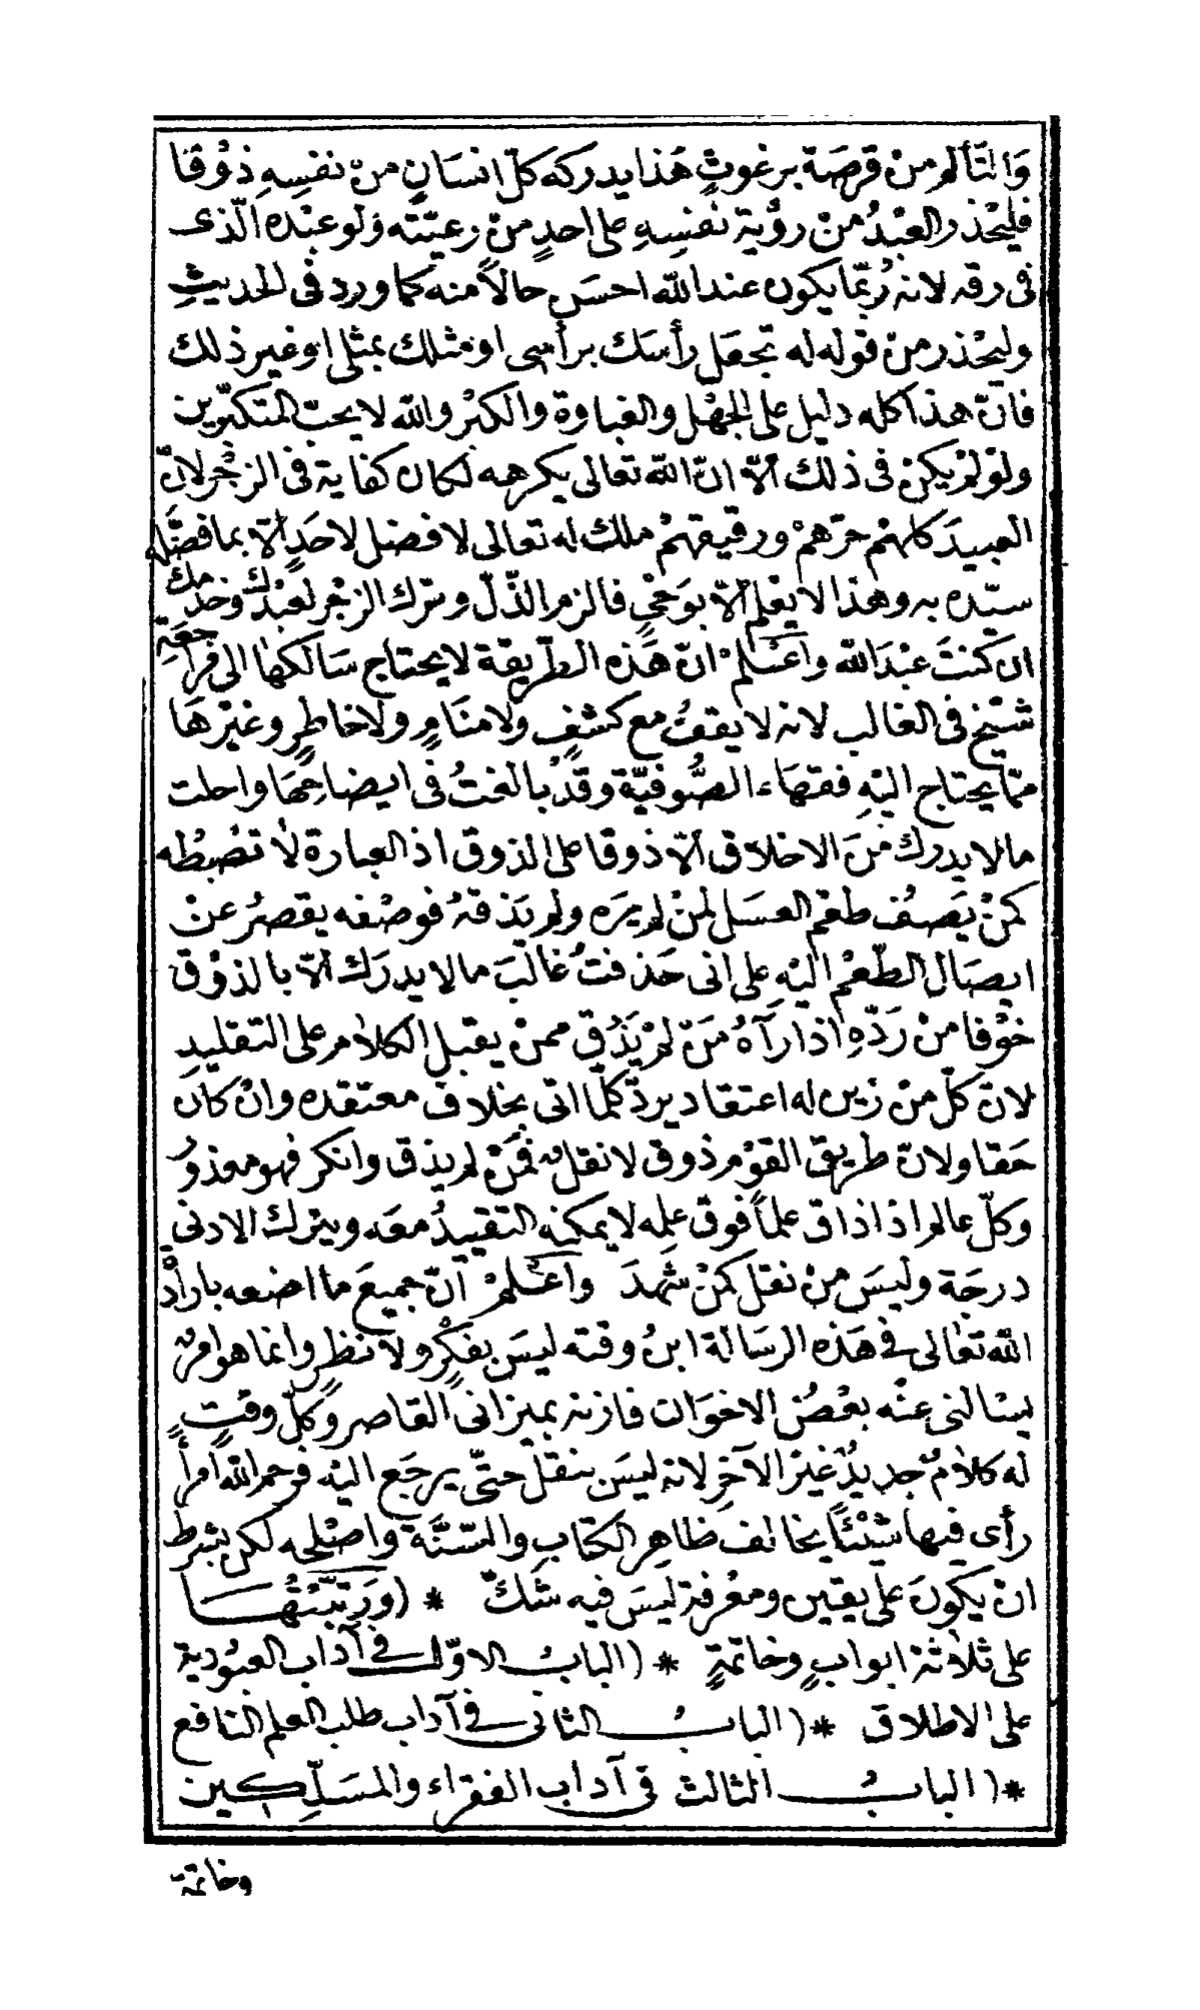 وَالتّألم منْ قرصَة برغوثٍ هَذا يدركه كلّ انسَانٍ منْ نفسِهِ ذوْقا
فليحْذر العبْدُ منْ رؤْيةِ نفسِهِ على احدٍ منْ رعيّته وَلو عبْده الّذى
فى رقه لانه رُبّما يكون عند الله احسَن حالاً منه كما ورد فى الحديثِ
وليحْذر من قوله له تجعَل رأسَك برأسى او مثلك بمثلى او غير ذلك
فانّ هذا كله دليل على الجهْل والغباوة والكبْر والله لا يحبّ المتكبّرين
ولوْ لمْ يكن فى ذلك الاّ انّ الله تعالى يكرهه لكان كفاية فى الزجْر لانّ
العبيدَ كلهمْ حرّهمْ ورقيقهمْ ملك له تعالى لا فضل لاحَدٍ الاّ بما فضّله
سيّده به وهذا لا يعْلم الاّ بوَحْىٍ فالزم الذّلّ وترك الزجْر لعبْدك وخدمك
ان كنتَ عبْدَ الله واعْلمْ انّ هَذه الطّريقة لا يحتاج سَالكهَا الى مراجعَةِ
شيْخ فى الغالب لانه لا يقفُ مع كشفٍ ولا منَامٍ ولا خاطرٍ وغيْرهَا
ممّا يحتاج اليْهِ فقهَاء الصُّوفيّة وقدْ بالغتُ فى ايضاحِهَا واحلت
ما لا يدرك منَ الاخلاق الاّ ذوقا على الذوق اذ العبارة لا تضْبطُه
كمنْ يَصفُ طعْم العسَل لمنْ لم يرَه ولم يَذقهُ فوصْفه يقصرُ عنْ
ايصَال الطّعْم اليْهِ على انى حَذفتُ غالبَ ما لا يدرَك الاّ بالذوْق
خوْفا منْ رَدّهِ اذا رَآهُ مَنْ لمْ يَذُقْ ممنْ يقبل الكلام على التقليدِ
لانّ كلّ منْ زين له اعتقاد يردّ كلّما اتى بخلاف معتقده وانْ كانَ
حَقا ولانّ طريق القوْم ذوق لا نقلٌ فمَنْ لم يذق وانكر فهو معذورٌ
وكلّ عالم اذا ذاق علماً فوق علمِه لا يمكنه التقييدُ معَه ويترك الادنى
درجَة وليسَ منْ نقل كمنْ شهدَ واعْلمْ انّ جميعَ ما اضعه بارادة
الله تعالى فى هَذه الرسَالة ابنُ وقته ليسَ بفكْرٍ ولا نظرٍ وانما هو امرٌ
يسْالنى عنْه بعْضُ الاخوَان فازنه بميزانى القاصر وكلّ وقتٍ
له كلامٌ جديدٌ غيْر الآخرِ لانه ليسَ بنقل حتّى يرجَع اليْه فرحم الله امرأ
رأى فيها شيْئاً يخالف ظاهِر الكتابِ والسّنَّة واصْلحه لكن بشرط
انْ يكونَ على يقين ومعْرفة ليسَ فيه شَكّ * (وَرَتبّتُهَا
على ثلاثة ابوابٍ وخاتمةٍ * (البابُ الاوّل فى آداب العبُودية
على الاطلاق * (البابُ الثانى فى آداب طلب العلم النافع
* (البابُ الثالث فى آداب الفقراء والمسَلّكين
وخاتمة